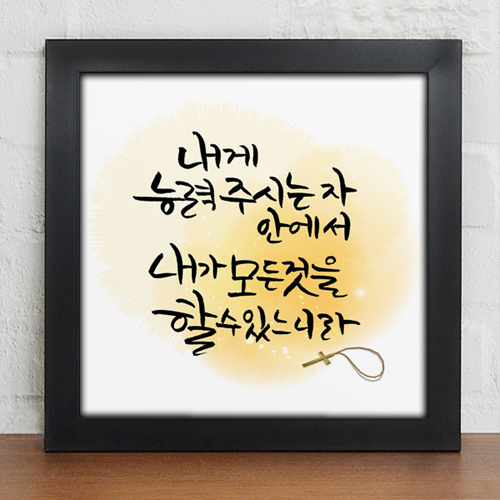 내게
능력 주시는 자
안에서
내가 모든것을
할수있느니라